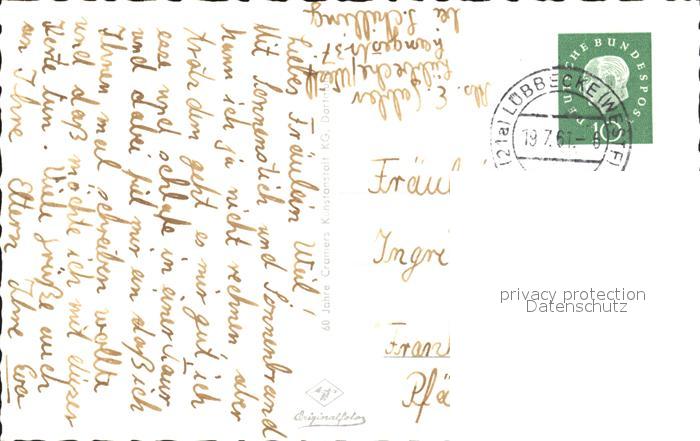 Liebes Fräulein Weil!
Mit Sonnenstich und Sonnenbrand
kann ich ja nicht rechnen aber
trotzdem geht es mir gut ich
esse und schlafe in einer Tour
und dabei fiel mir ein daß ich
Ihnen mal schreiben wollte
und daß möchte ich mit dieser
Karte tun. Viele Grüße auch
an Ihre Eltern Ihre Eva
Abs. E.
Lübbecke/Westf
bei Schilling
60 Jahre Cramers Kunstanstalt KG, Dortm
DEUTSCHE BUNDESPOST
10
(21a) LÜBBECKE (WESTF)
19.7.61.- 8
Fräul
Ingre
Fran
Pfä
privacy protection
Datenschutz
Originalfoto